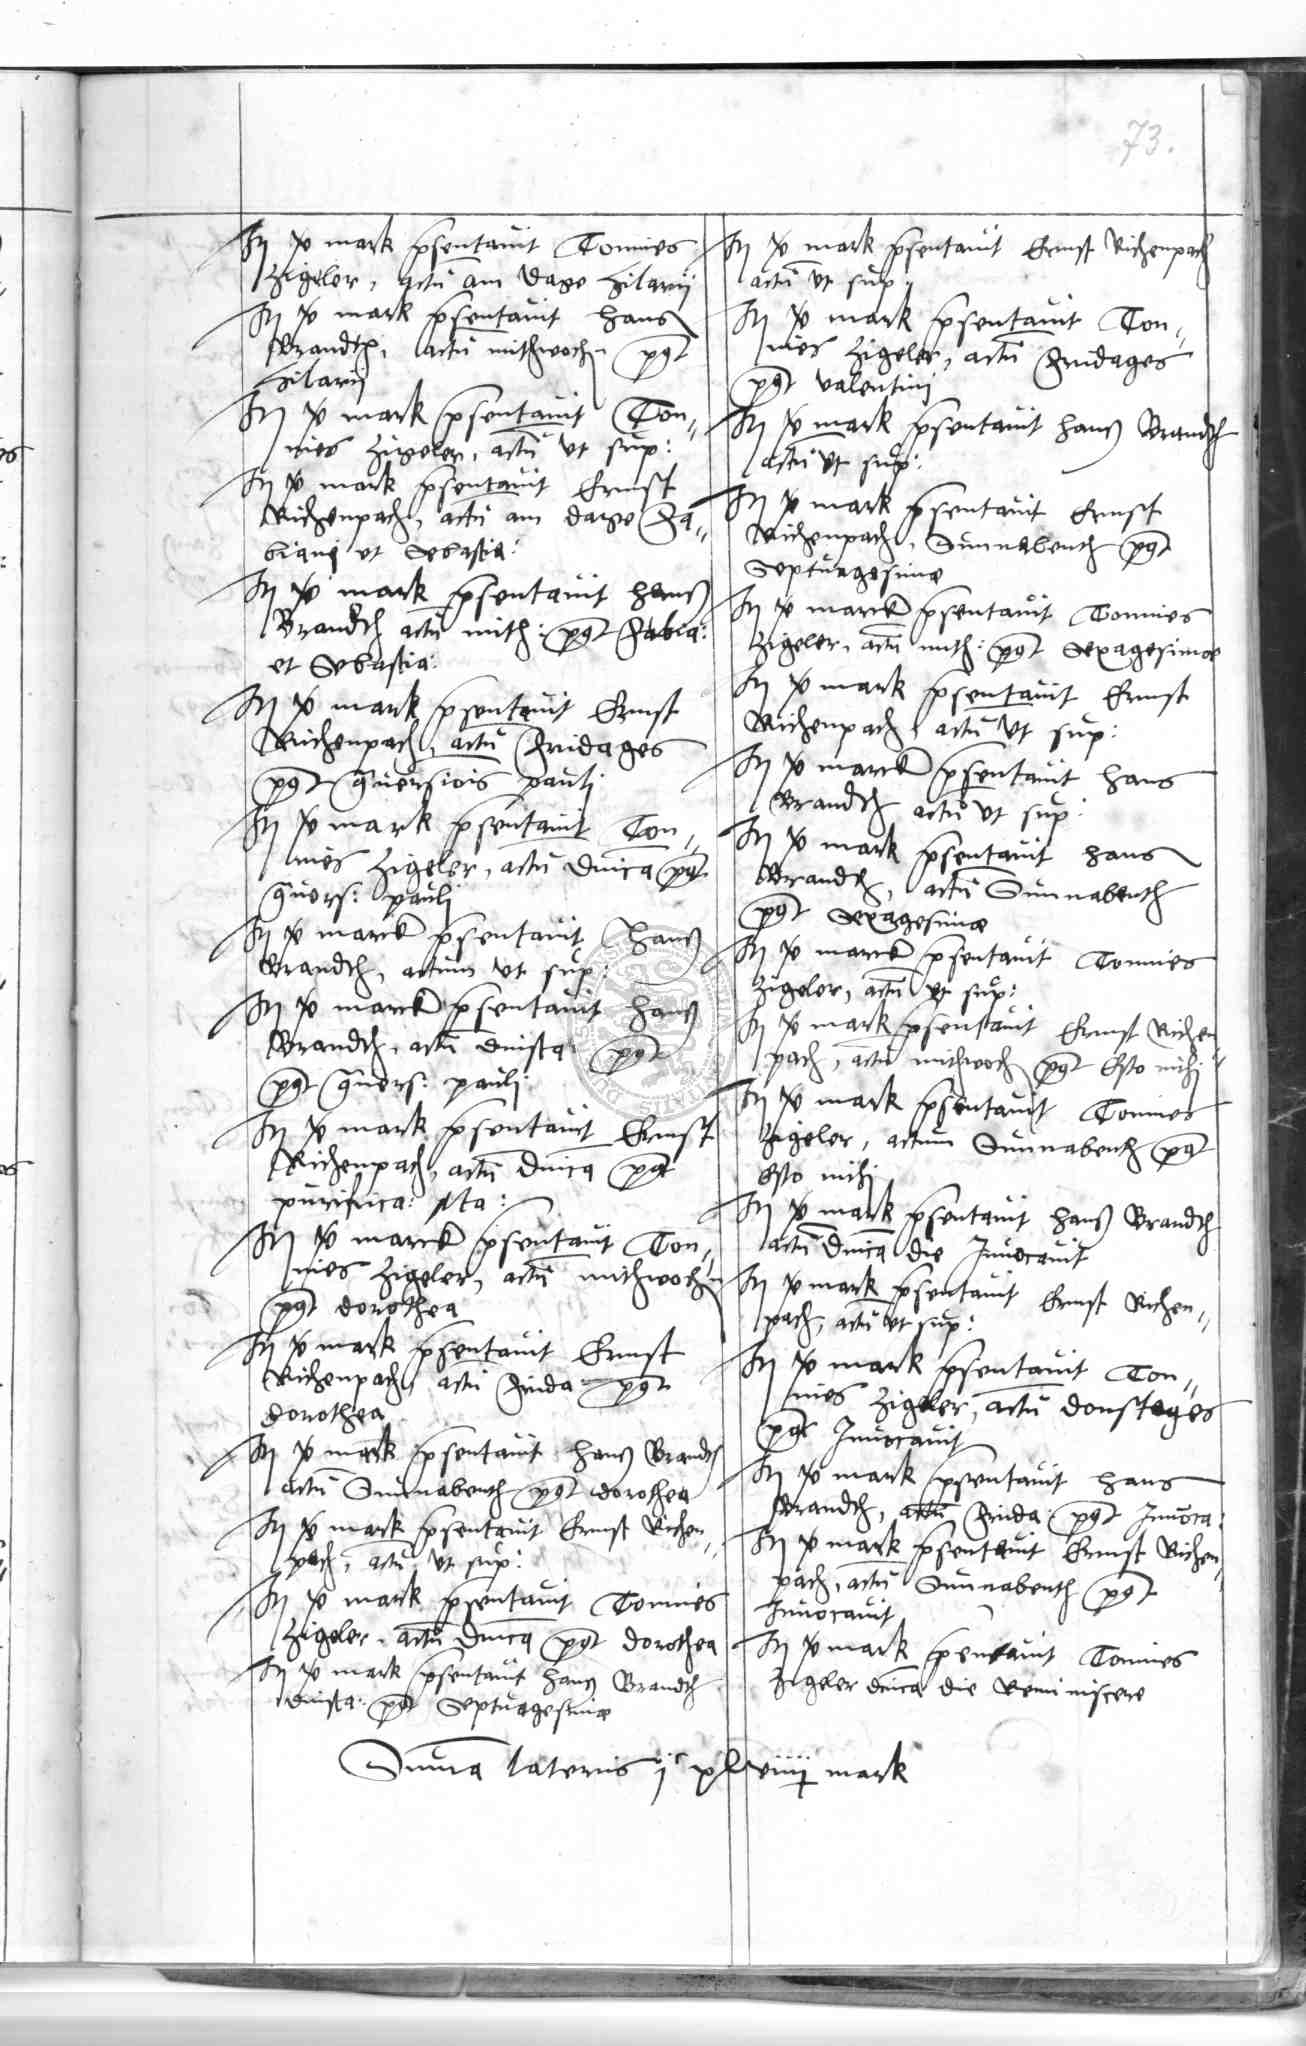 73.
Itē xv mark pѕentauit Tonnies
Zigeler, actū am dage Hilarij
Itē xv mark psentauit hans
Brandth, actū mithwochn pꝯt
Hilarij
Itē xv mark psentauit Ton„
nies Zigeler, actū ut sup:
Itē xv mark psentauit Ernst
Richenpach, actū am dage Fa„
biani et Sebastia:
Itē xv mark psentauit hans
Brandth actū mith: pꝯt Fabia:
et Sebastia:
Itē xv mark psentauit Ernst
Richenpach, actū Fridages
pꝯt ꝯuersiois pauli
Itē xv mark psentauit Ton„
nies Zigeler, actū dnica pꝯt
ꝯuers: pauli
Itē xv marck psentauit hans
Brandth, actum ut sup:
Itē xv marck psentauit hans
Brandth, actū dinsta: pꝯt
pꝯt ꝯuers: pauli
Itē xv mark psentauit Ernst
Richenpach, actū dnica pꝯt
purifica: Ma:
Itē xv marck psentauit Ton„
nies Zigeler, actū mithwochn
pꝯt dorothea
Itē xv mark psentauit Ernst
Richenpach, actū Frida pꝯt
dorothea
Itē xv mark psentauit hans Brandth
actū Sunnabenth pꝯt dorothea
Itē xv mark psentauit Ernst Richen„
pach, actū ut sup:
Itē xv mark psentauit Tonnies
Zigeler, actū dnica pꝯt dorothea
Itē xv mark psentauit hans Brandth
dinsta: pꝯt Septuagesime
Itē xv mark psentauit Ernst Richenpach
actū ut sup
Itē xv mark psentauit Ton„
nies Zigeler, actū Fridages
pꝯt valentini
Itē xv mark psentauit hans Brandth
actū ut sup:
Itē xv mark psentauit Ernst
Richenpach, Sunnabenth pꝯt
Septuagesime
Itē xv marck psentauit Tonnies
Zigeler, actū mith: pꝯt Sexagesime
Itē xv mark psentauit Ernst
Richenpach, actū ut sup:
Itē xv marck psentauit hans
Brandth actū ut sup:
Itē xv mark psentauit hans
Brandth, actū Sunnabenth
pꝯt Sexagesime
Itē xv marck psentauit Tonnies
Zigeler, actū ut sup:
Itē xv mark psentauit Ernst Richen„
pach, actū mithwoch pꝯt Esto mihi
Itē xv mark psentauit Tonnies
Zigeler, actum Sunnabenth pꝯt
Esto mihi
Itē xv mark psentauit hans Brandth
actū dnica die Inuocauit
Itē xv mark psentauit Ernst Richen„
pach, actū ut sup:
Itē xv mark psentauit Ton„
nies Zigeler, actū donstages
pꝯt Inuocauit
Itē xv mark psentauit hans
Brandth, actū Frida pꝯt Inuoca:
Itē xv mark psentauit Ernst Richen„
pach, actū Sunnabenth pꝯt
Inuocauit
Itē xv mark psentauit Tonnies
Zigeler dnica die Reminiscere
Suma lateris ijᶜ mark